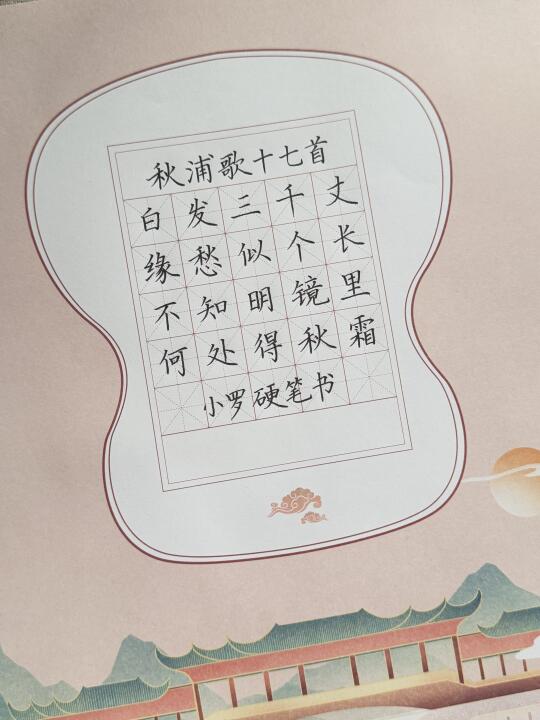 秋浦歌十七首
白发三千丈
缘愁似个长
不知明镜里
何处得秋霜
小罗硬笔书